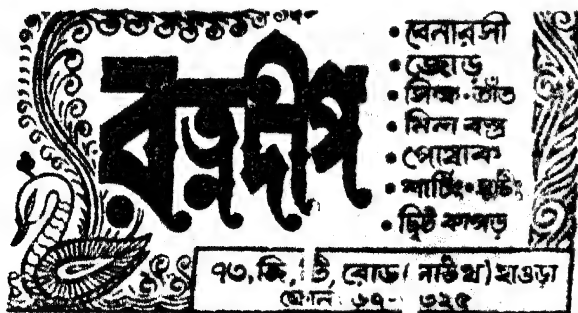 রত্নদীপ
• বেনারসী
• জোড়
• সিল্ক • তাঁত
• মিল বস্ত্র
• পোষাক
• শার্টিং • সুটিং
• ছিট কাপড়
৭৩, জি, টি, রোড (সাউথ) হাওড়া
ফোন ৬৭-